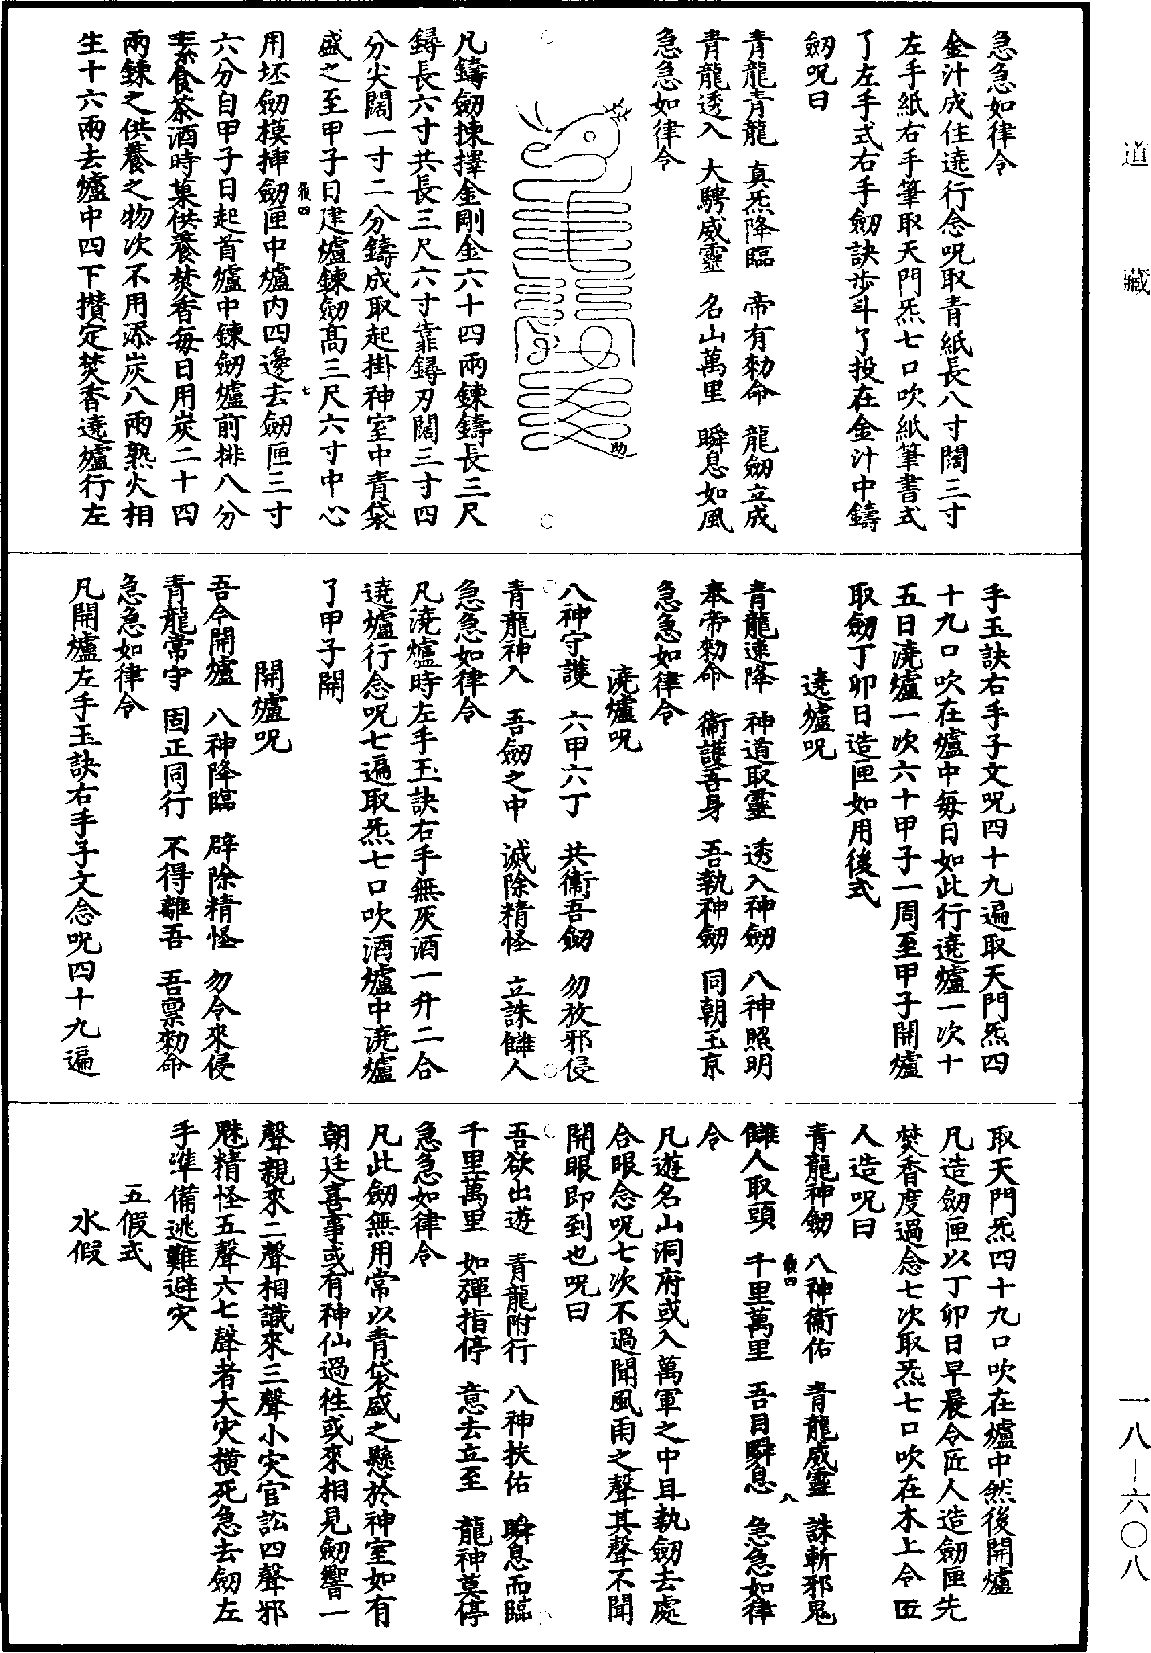 道藏
急急如律令
金汁成住遶行念呪取青紙長八寸闊三寸
左手紙右手筆取天門炁七口吹紙筆書式
了左手式右手劒訣步斗了投在金汁中鑄
劒呪曰
青龍青龍 真炁降臨 帝有勑命 龍劒立成
青龍透入 大騁威靈 名山萬里 瞬息如風
急急如律令
凡鑄劒揀擇金剛金六十四兩鍊鑄長三尺
鐞長六寸共長三尺六寸靠鐞刃闊三寸四
分尖闊一寸二分鑄成取起掛神室中青袋
盛之至甲子日建爐鍊劒高三尺六寸中心
用坯劒模揷劒匣中爐内四邊去劒匣三寸
六分自甲子日起首爐中鍊劒爐前排八分
素食茶酒時菓供養焚香每日用炭二十四
兩鍊之供養之物次不用添炭八兩熟火相
生十六兩去爐中四下攢定焚香遶爐行左
手玉訣右手子文呪四十九遍取天門炁四
十九口吹在爐中每日如此行遶爐一次十
五日澆爐一次六十甲子一周至甲子開爐
取劒丁卯日造匣如用後式
遶爐呪
青龍速降 神道取靈 透入神劒 八神照明
奉帝勑命 衞護吾身 吾執神劒 同朝玉京
急急如律令
澆爐呪
八神守護 六甲六丁 共衞吾劒 勿放邪侵
青龍神入 吾劒之中 滅除精怪 立誅讎人
急急如律令
凡澆爐時左手玉訣右手無灰酒一升二合
遶爐行念呪七遍取炁七口吹酒爐中澆爐
了甲子開
開爐呪
吾今開爐 八神降臨 辟除精怪 勿令來侵
青龍常守 固正同行 不得離吾 吾禀勑命
急急如律令
凡開爐左手玉訣右手子文念呪四十九遍
取天門炁四十九口吹在爐中然後開爐
凡造劒匣以丁卯日早晨令匠人造劒匣先
焚香度過念七次取炁七口吹在木上令匠
人造呪曰
青龍神劒 八神衞佑 青龍威靈 誅斬邪鬼
讎人取頭 千里萬里 吾目瞬息 急急如律
令
凡遊名山洞府或入萬軍之中且執劒去處
合眼念呪七次不過聞風雨之聲其聲不聞
開眼即到也呪曰
吾欲出遊 青龍附行 八神扶佑 瞬息而臨
千里萬里 如彈指停 意去立至 龍神莫停
急急如律令
凡此劒無用常以青袋盛之懸於神室如有
朝廷喜事或有神仙過徃或來相見劒響一
聲親來二聲相識來三聲小灾官訟四聲邪
魅精怪五聲六七聲者大灾橫死急去劒左
手準備逃難避灾
五假式
水假
一八—六〇八